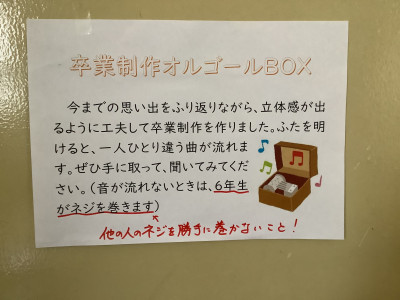 卒業制作オルゴールBOX
今までの思い出をふり返りながら、立体感が出
るように工夫して卒業制作を作りました。ふたを明
けると、一人ひとり違う曲が流れま
す。ぜひ手に取って、聞いてみてくだ
さい。（音が流れないときは、6年生
がネジを巻きます）
他の人のネジを勝手に巻かないこと！